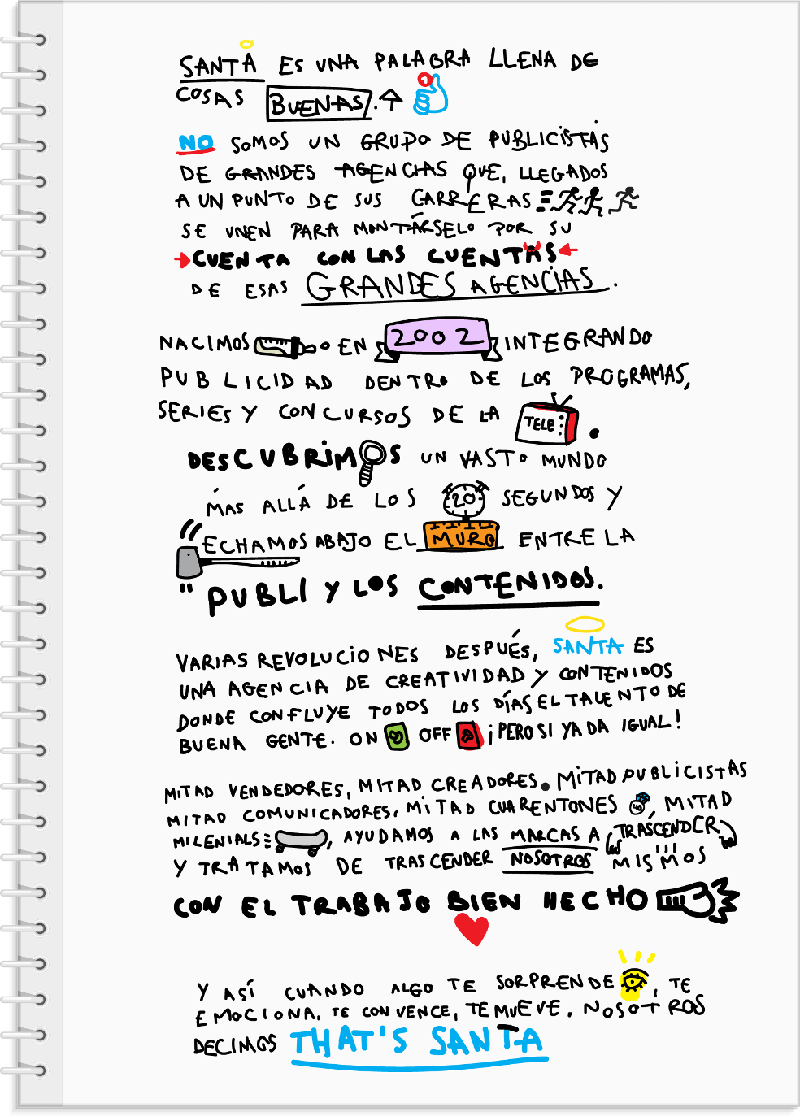 SANTA ES UNA PALABRA LLENA DE
COSAS BUENAS. 1
NO SOMOS UN GRUPO DE PUBLICISTAS
DE GRANDES AGENCIAS QUE, LLEGADOS
A UN PUNTO DE SUS CARRERAS
SE UNEN PARA MONTÁRSELO POR SU
CUENTA CON LAS CUENTAS
DE ESAS GRANDES AGENCIAS.
NACIMOS EN 2002 INTEGRANDO
PUBLICIDAD DENTRO DE LOS PROGRAMAS,
SERIES Y CONCURSOS DE LA TELE.
DESCUBRIMOS UN VASTO MUNDO
MAS ALLÁ DE LOS 20 SEGUNDOS Y
ECHAMOS ABAJO EL MURO ENTRE LA
"PUBLI Y LOS CONTENIDOS.
VARIAS REVOLUCIONES DESPUÉS, SANTA ES
UNA AGENCIA DE CREATIVIDAD Y CONTENIDOS
DONDE CONFLUYE TODOS LOS DÍAS EL TALENTO DE
BUENA GENTE. ON OFF ¡PERO SI YA DA IGUAL!
MITAD VENDEDORES, MITAD CREADORES. MITAD PUBLICISTAS
MITAD COMUNICADORES. MITAD CUARENTONES, MITAD
MILENIALS, AYUDAMOS A LAS MARCAS A TRASCENDER
Y TRATAMOS DE TRASCENDER NOSOTROS MISMOS
CON EL TRABAJO BIEN HECHO
Y ASÍ CUANDO ALGO TE SORPRENDE, TE
EMOCIONA, TE CONVENCE, TE MUEVE. NOSOTROS
DECIMOS THAT'S SANTA